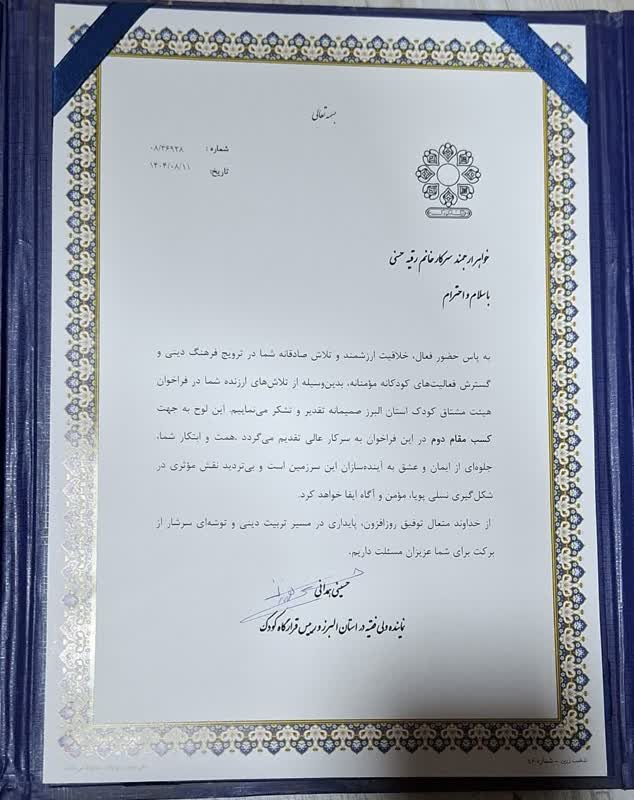 بسمه تعالی
شماره: ۰۸/۲۶۹۲۸
تاریخ: ۱۴۰۴/۰۸/۱۱
خواهر ارجمند سرکار خانم رقیه حسنی
با سلام و احترام
به پاس حضور فعال، خلاقیت ارزشمند و تلاش صادقانه شما در ترویج فرهنگ دینی و
گسترش فعالیت‌های کودکانه مؤمنانه، بدین‌وسیله از تلاش‌های ارزنده شما در فراخوان
هیئت مشتاق کودک استان البرز صمیمانه تقدیر و تشکر می‌نماییم. این لوح به جهت
کسب مقام دوم در این فراخوان به سرکار عالی تقدیم می‌گردد .همت و ابتکار شما،
جلوه‌ای از ایمان و عشق به آینده‌سازان این سرزمین است و بی‌تردید نقش مؤثری در
شکل‌گیری نسلی پویا، مؤمن و آگاه ایفا خواهد کرد.
از خداوند متعال توفیق روزافزون، پایداری در مسیر تربیت دینی و توشه‌ای سرشار از
برکت برای شما عزیزان مسئلت داریم.
حسینی همدانی
نماینده ولی فقیه در استان البرز و رییس قرارگاه کودک